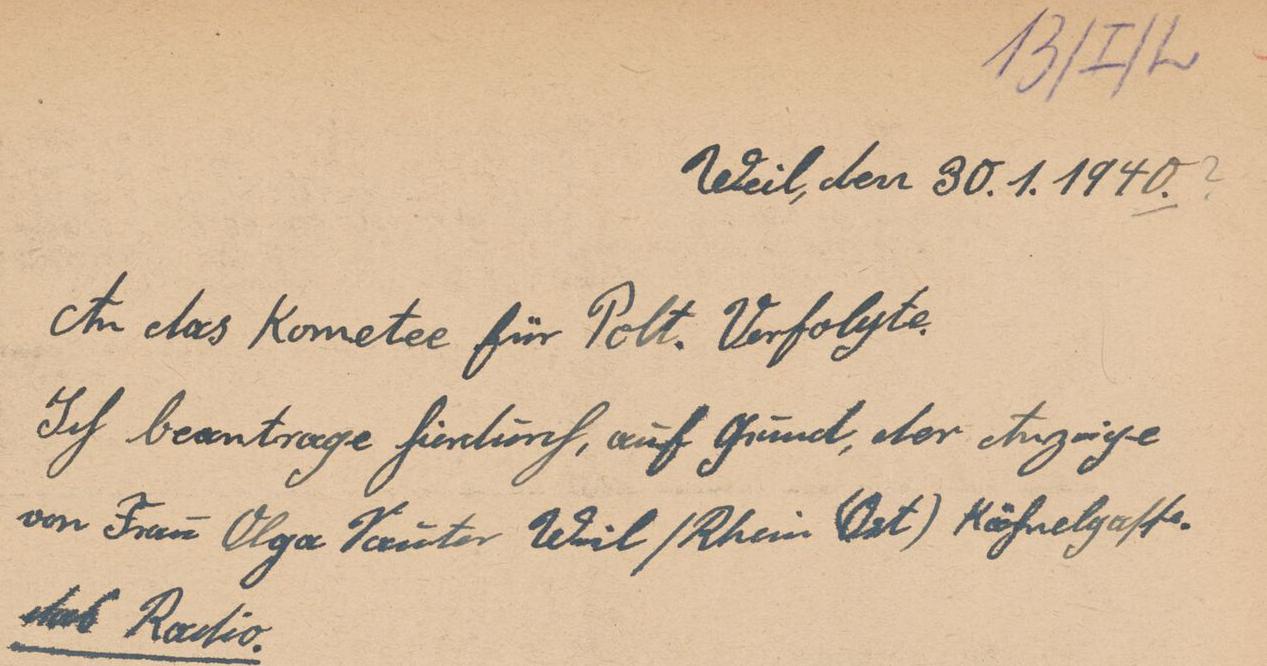 13/I/L
Weil, den 30.1.1940.?
An das Kometee für Polt. Verfolgte.
Ich beantrage hierdurch, auf Grund, der Anzeige
von Frau Olga Vauter Weil/Rhein (Ost) Kähnelgasse.
das Radio.